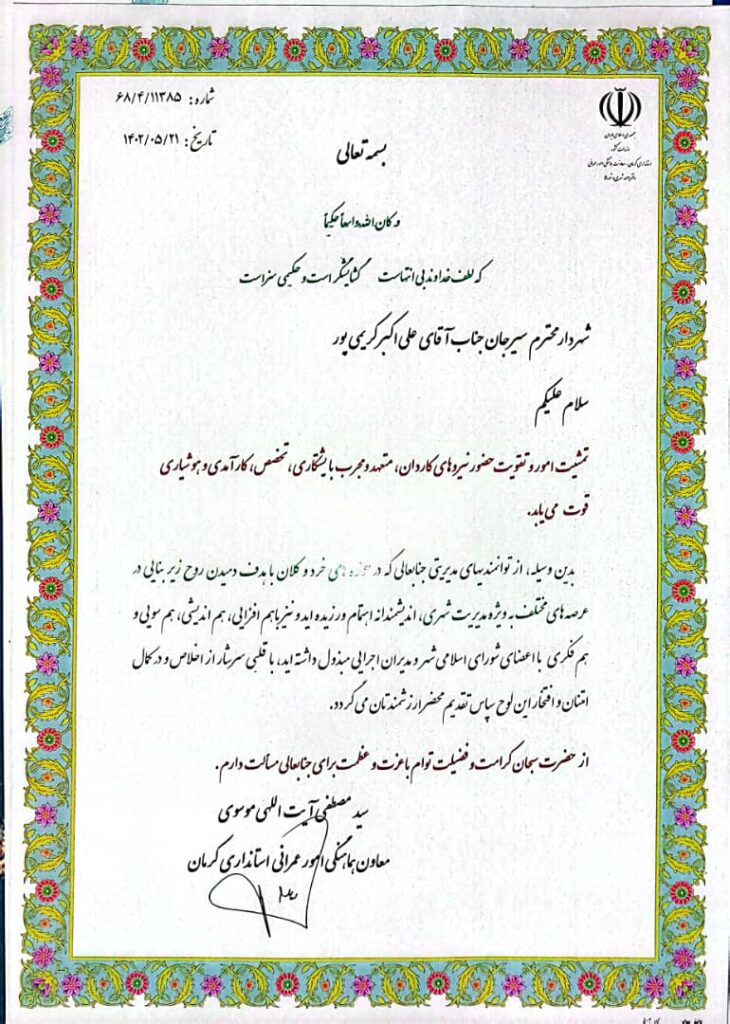 شماره: ۶۸/۴/۱۱۳۸۵
تاریخ: ۱۴۰۲/۰۵/۲۱
جمهوری اسلامی ایران
وزارت کشور
بسمه تعالی
و کان الله واسعاً حکیماً
که لطف خداوند بی انتهاست گشایشگر است و حکیمی سزاست
شهردار محترم سیرجان جناب آقای علی اکبر کریمی پور
سلام علیکم
تمشیت امور و تقویت حضور نیروهای کاردان، متعهد و مجرب با پشتکاری، تخصص، کارآمدی و هوشیاری
قوت می یابد.
بدین وسیله، از توانمندیهای مدیریتی جنابعالی که در حوزه های خرد و کلان با هدف دمیدن روح زیر بنایی در
عرصه های مختلف به ویژه مدیریت شهری، اندیشمندانه اهتمام ورزیده اید و نیز باهم افزایی، هم اندیشی، هم سویی و
هم فکری با اعضای شورای اسلامی شهر و مدیران اجرایی مبذول داشته اید، با قلبی سرشار از اخلاص و در کمال
امتنان و افتخار این لوح سپاس تقدیم محضر ارزشمندتان می گردد.
از حضرت سبحان کرامت و فضیلت توام با عزت و عظمت برای جنابعالی مسألت دارم.
سید مصطفی آیت اللهی موسوی
معاون هماهنگی امور عمرانی استانداری کرمان